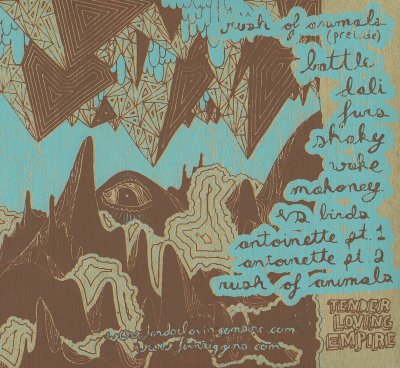 rush of animals
(prelude)
battle
dali
furs
shaky
wake
mahoney
vs birds
antoinette pt. 1
antoinette pt. 2
rush of animals
www.tenderlovingempire.com
www.finnriggins.com
TENDER
LOVING
EMPIRE